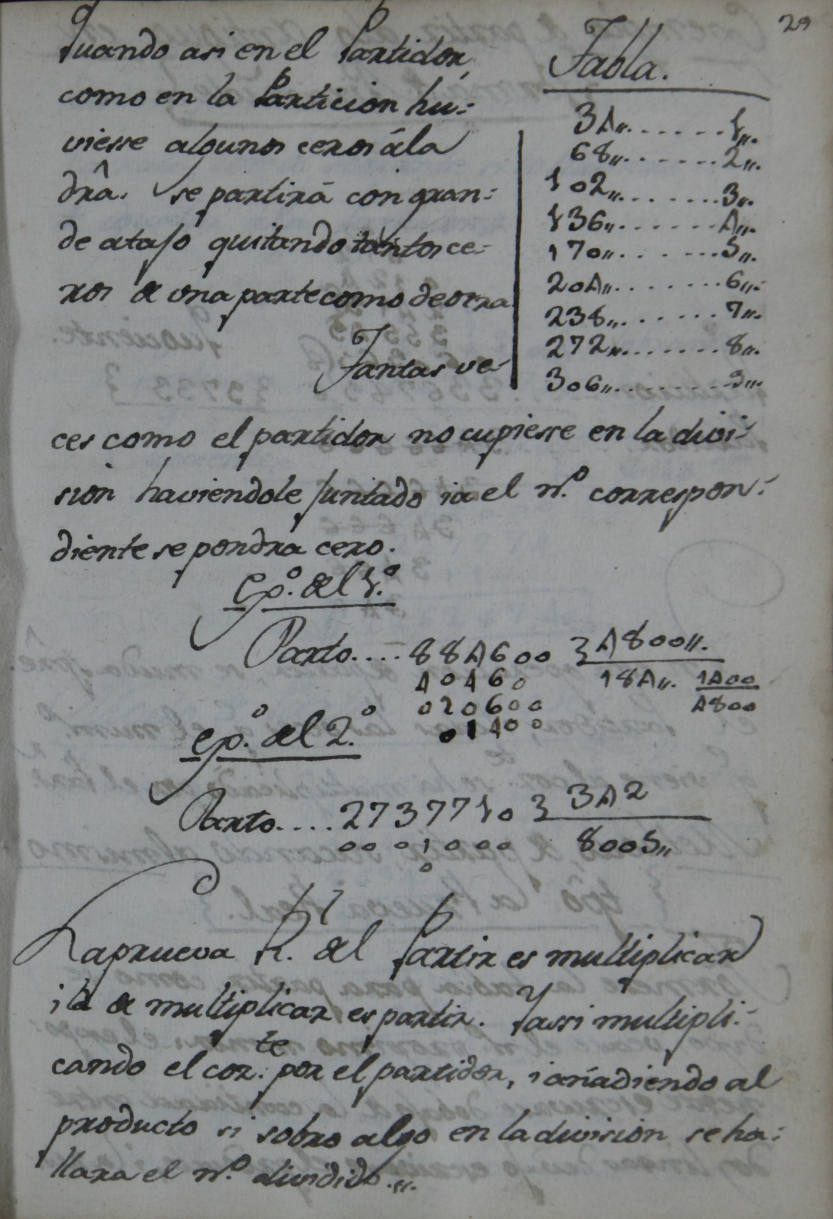 29
Quando asi en el Partidor,
como en la Particion hu-
viesse algunos ceros á la
dra̅. se partirá con gran-
de atajo quitando tantos ce-
ros de una parte como de otra
Tantas ve-
Tabla.
34,,.......1,,.
68,,.......2,,.
102,,.......3,,.
136,,.......4,,.
170,,.......5,,.
204,,.......6,,.
238,,.......7,,.
272,,.......8,,.
306,,.......9,,.
ces como el partidor no cupiesse en la divi-
sion haviendole juntado ia el n.º correspon-
diente se pondra cero.
Ep.º del 1.º
Parto.... 884600 } 4800,,.
40460 184,,. 1400
020600 4800
01400
ep.º del 2.º
Parto.... 2737710 } 342
0001000 8005,,
0
La prueva R. del Partir es multiplicar
i la de multiplicar es partir. Y assi multipli-
cando el cor.te por el partidor, i añadiendo al
producto si sobro algo en la division se ha-
llara el n.º dividido.,,.